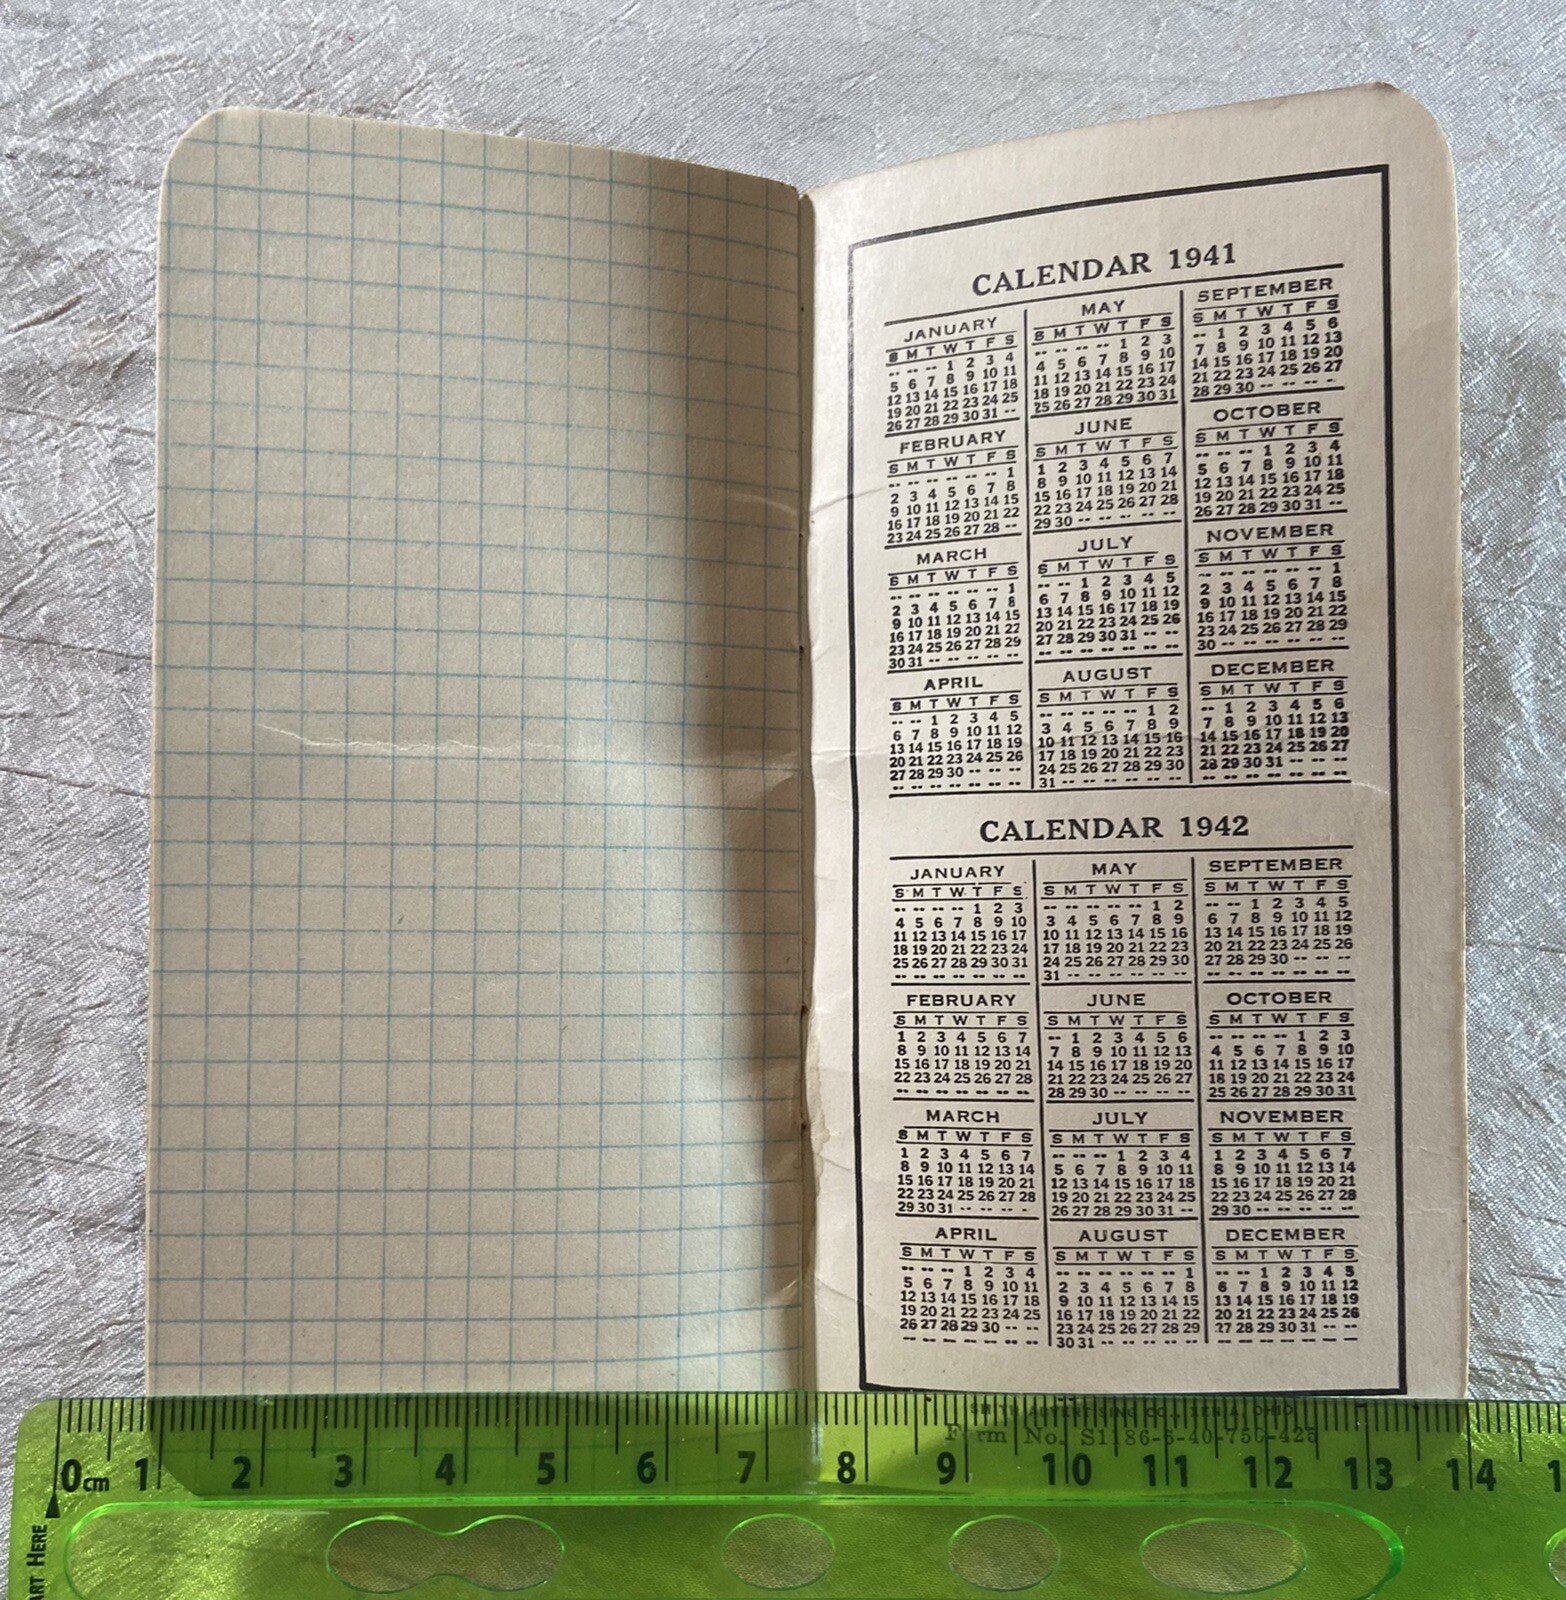 CALENDAR 1941
JANUARY
S M T W T F S
-- -- -- 1 2 3 4
5 6 7 8 9 10 11
12 13 14 15 16 17 18
19 20 21 22 23 24 25
26 27 28 29 30 31 --
FEBRUARY
S M T W T F S
-- -- -- -- -- -- 1
2 3 4 5 6 7 8
9 10 11 12 13 14 15
16 17 18 19 20 21 22
23 24 25 26 27 28 --
MARCH
S M T W T F S
-- -- -- -- -- -- 1
2 3 4 5 6 7 8
9 10 11 12 13 14 15
16 17 18 19 20 21 22
23 24 25 26 27 28 29
30 31 -- -- -- -- --
APRIL
S M T W T F S
-- -- 1 2 3 4 5
6 7 8 9 10 11 12
13 14 15 16 17 18 19
20 21 22 23 24 25 26
27 28 29 30 -- -- --
MAY
S M T W T F S
-- -- -- -- 1 2 3
4 5 6 7 8 9 10
11 12 13 14 15 16 17
18 19 20 21 22 23 24
25 26 27 28 29 30 31
JUNE
S M T W T F S
1 2 3 4 5 6 7
8 9 10 11 12 13 14
15 16 17 18 19 20 21
22 23 24 25 26 27 28
29 30 -- -- -- -- --
JULY
S M T W T F S
-- -- 1 2 3 4 5
6 7 8 9 10 11 12
13 14 15 16 17 18 19
20 21 22 23 24 25 26
27 28 29 30 31 -- --
-- -- -- -- -- -- --
AUGUST
S M T W T F S
-- -- -- -- -- 1 2
3 4 5 6 7 8 9
10 11 12 13 14 15 16
17 18 19 20 21 22 23
24 25 26 27 28 29 30
31 -- -- -- -- -- --
SEPTEMBER
S M T W T F S
-- 1 2 3 4 5 6
7 8 9 10 11 12 13
14 15 16 17 18 19 20
21 22 23 24 25 26 27
28 29 30 -- -- -- --
OCTOBER
S M T W T F S
-- -- -- 1 2 3 4
5 6 7 8 9 10 11
12 13 14 15 16 17 18
19 20 21 22 23 24 25
26 27 28 29 30 31 --
NOVEMBER
S M T W T F S
-- -- -- -- -- -- 1
2 3 4 5 6 7 8
9 10 11 12 13 14 15
16 17 18 19 20 21 22
23 24 25 26 27 28 29
30 -- -- -- -- -- --
DECEMBER
S M T W T F S
-- 1 2 3 4 5 6
7 8 9 10 11 12 13
14 15 16 17 18 19 20
21 22 23 24 25 26 27
28 29 30 31 -- -- --
-- -- -- -- -- -- --
CALENDAR 1942
JANUARY
S M T W T F S
-- -- -- -- 1 2 3
4 5 6 7 8 9 10
11 12 13 14 15 16 17
18 19 20 21 22 23 24
25 26 27 28 29 30 31
-- -- -- -- -- -- --
FEBRUARY
S M T W T F S
1 2 3 4 5 6 7
8 9 10 11 12 13 14
15 16 17 18 19 20 21
22 23 24 25 26 27 28
-- -- -- -- -- -- --
MARCH
S M T W T F S
1 2 3 4 5 6 7
8 9 10 11 12 13 14
15 16 17 18 19 20 21
22 23 24 25 26 27 28
29 30 31 -- -- -- --
APRIL
S M T W T F S
-- -- -- 1 2 3 4
5 6 7 8 9 10 11
12 13 14 15 16 17 18
19 20 21 22 23 24 25
26 27 28 29 30 -- --
-- -- -- -- -- -- --
MAY
S M T W T F S
-- -- -- -- -- 1 2
3 4 5 6 7 8 9
10 11 12 13 14 15 16
17 18 19 20 21 22 23
24 25 26 27 28 29 30
31 -- -- -- -- -- --
JUNE
S M T W T F S
-- 1 2 3 4 5 6
7 8 9 10 11 12 13
14 15 16 17 18 19 20
21 22 23 24 25 26 27
28 29 30 -- -- -- --
JULY
S M T W T F S
-- -- -- 1 2 3 4
5 6 7 8 9 10 11
12 13 14 15 16 17 18
19 20 21 22 23 24 25
26 27 28 29 30 31 --
AUGUST
S M T W T F S
-- -- -- -- -- -- 1
2 3 4 5 6 7 8
9 10 11 12 13 14 15
16 17 18 19 20 21 22
23 24 25 26 27 28 29
30 31 -- -- -- -- --
SEPTEMBER
S M T W T F S
-- -- 1 2 3 4 5
6 7 8 9 10 11 12
13 14 15 16 17 18 19
20 21 22 23 24 25 26
27 28 29 30 -- -- --
-- -- -- -- -- -- --
OCTOBER
S M T W T F S
-- -- -- -- 1 2 3
4 5 6 7 8 9 10
11 12 13 14 15 16 17
18 19 20 21 22 23 24
25 26 27 28 29 30 31
NOVEMBER
S M T W T F S
1 2 3 4 5 6 7
8 9 10 11 12 13 14
15 16 17 18 19 20 21
22 23 24 25 26 27 28
29 30 -- -- -- -- --
DECEMBER
S M T W T F S
-- -- 1 2 3 4 5
6 7 8 9 10 11 12
13 14 15 16 17 18 19
20 21 22 23 24 25 26
27 28 29 30 31 -- --
-- -- -- -- -- -- --
ADVERTISING CO., XENIA, OHIO
Form No. S1186-6-40-750-425
0cm 1 2 3 4 5 6 7 8 9 10 11 12 13 14
HERE